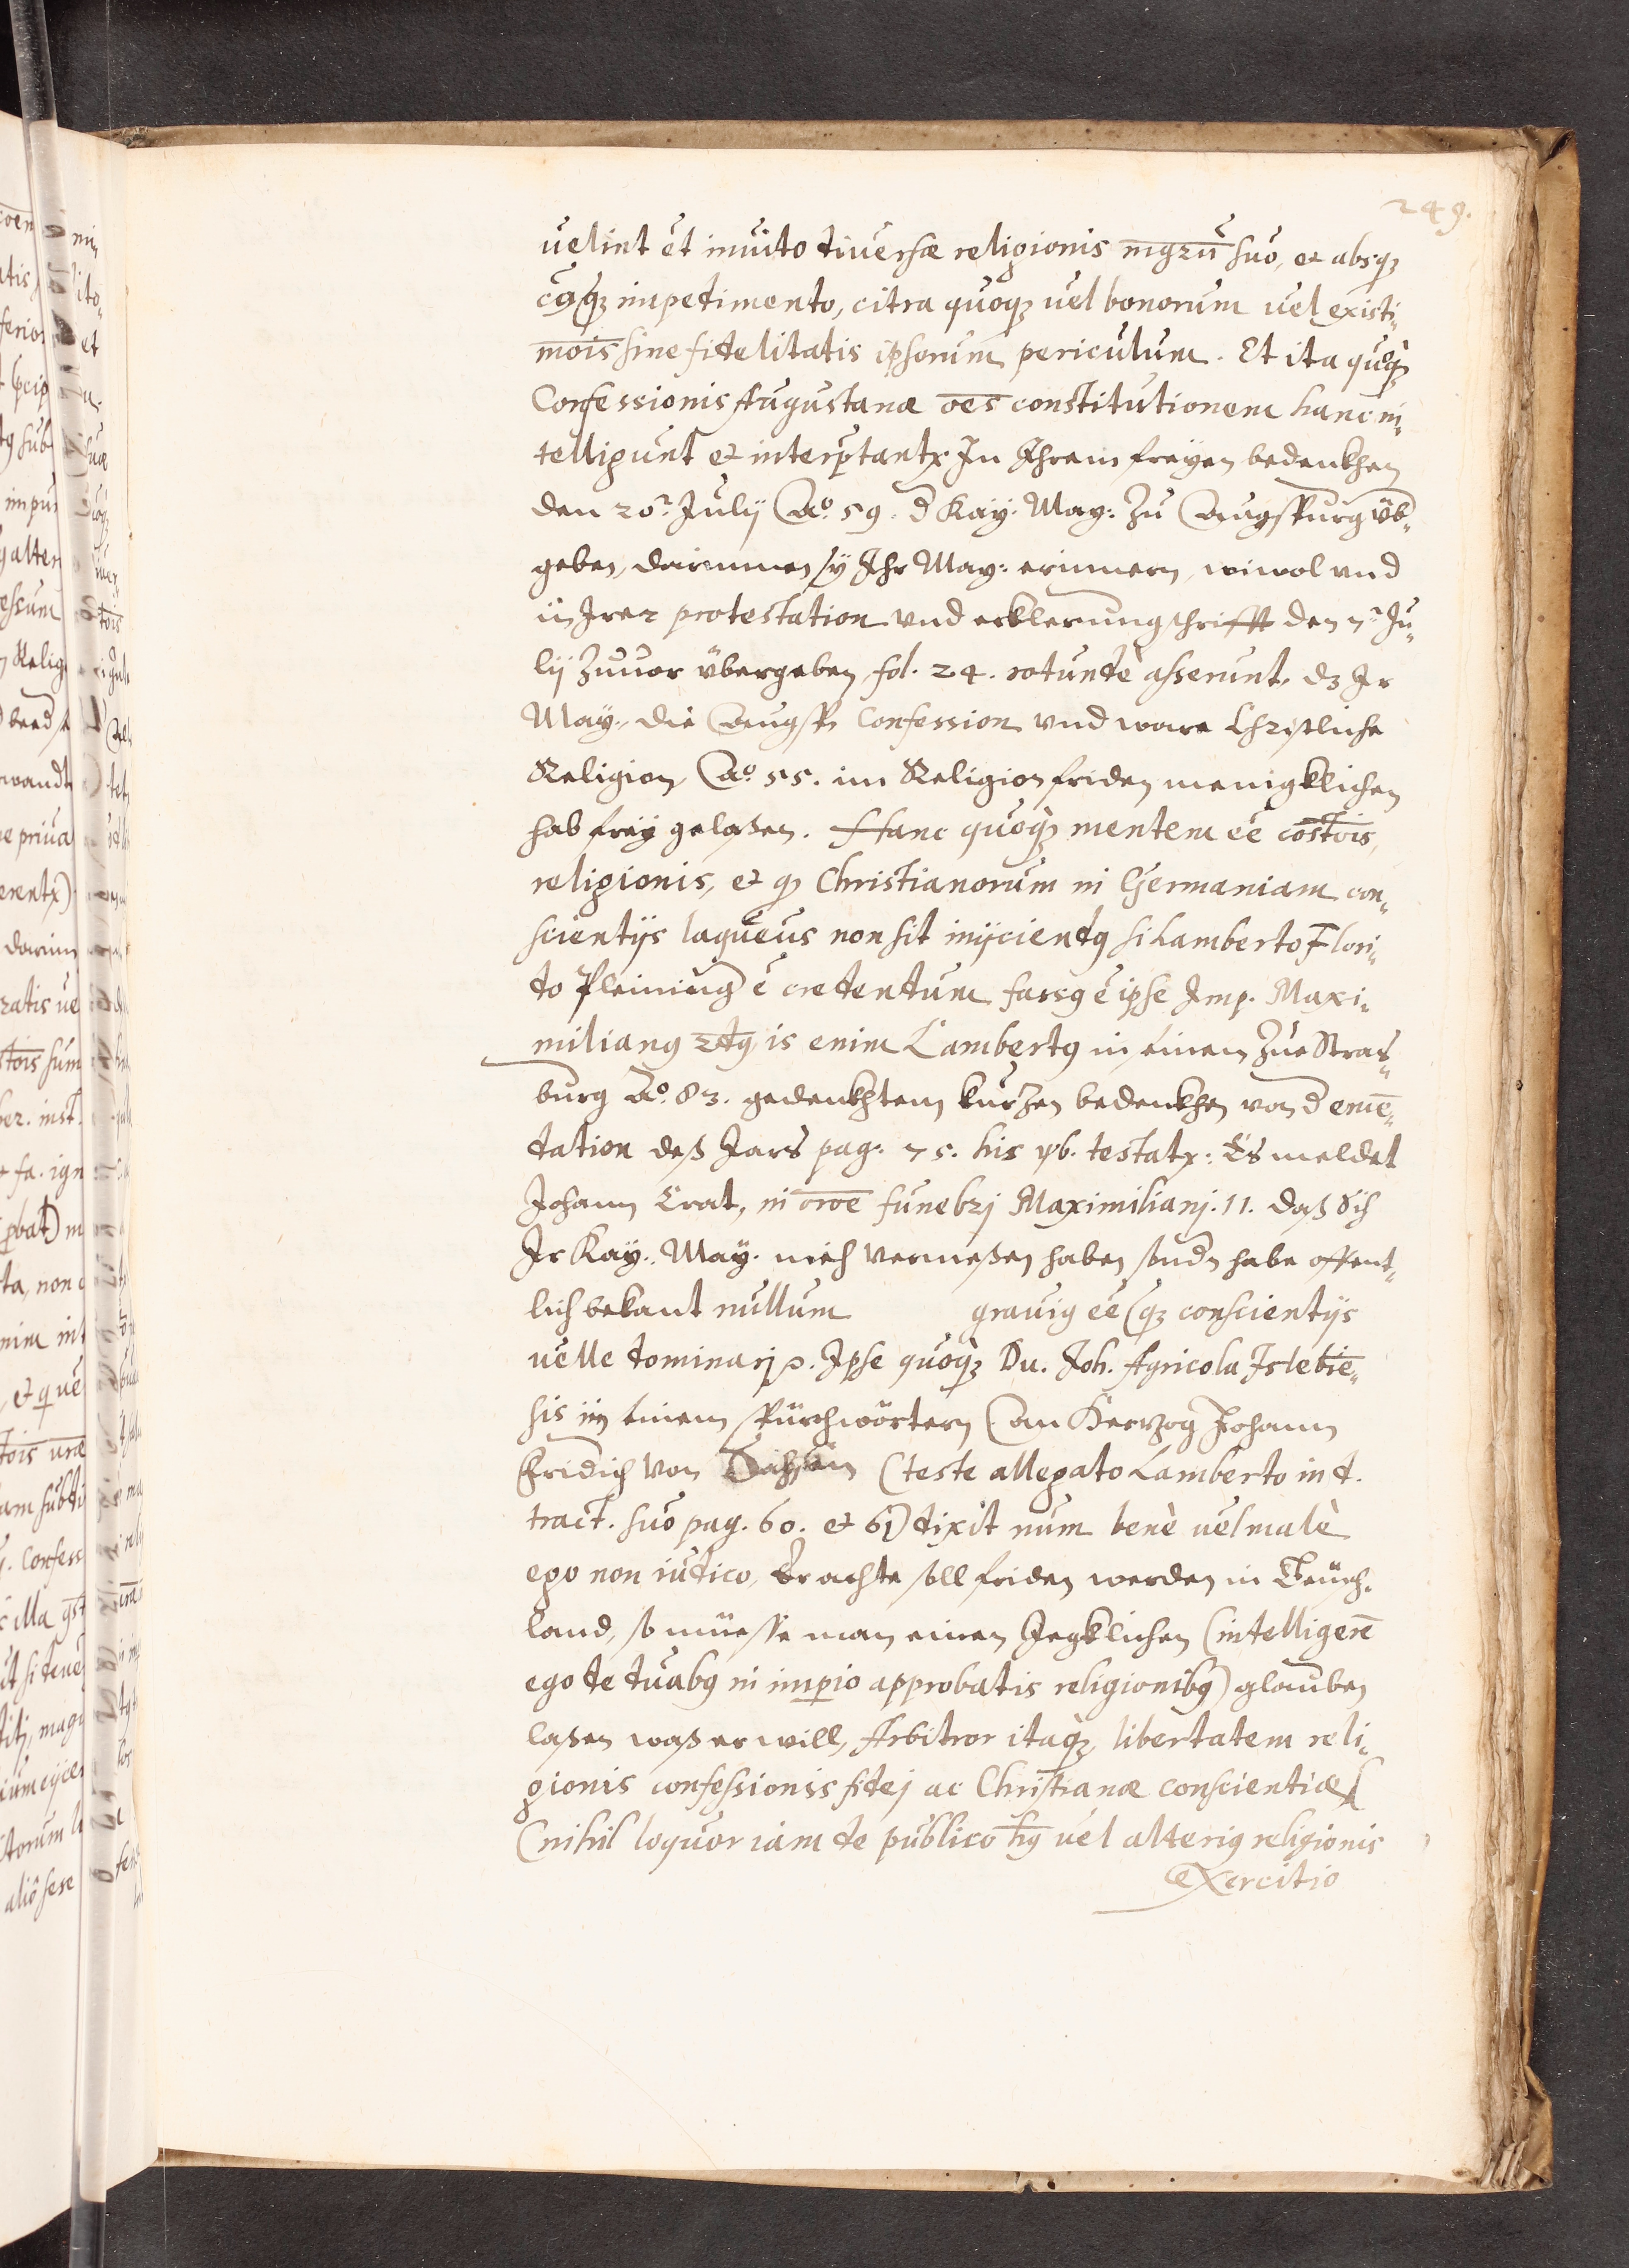 249.
uelint et inuito diuersæ religionis mgrũ suo, et absq;
cuq; impedimento, citra quoq; uel bonorum uel existi„
mõis siue fidelitatis ipsorum periculum. Et ita quoq;
Confessionis Augustanæ oẽs constitutionem hanc in„
telligunt et interptantr In Ihrem freyen bedenkhen
den 20. Julij Ao. 59. d Kay. May: zu Augspurg vb„
geben, darinnen sy Ihr May: erinnern, wiwol vnd
in Irer protestation vnd erklerung schrifft den 7. Ju„
lij zuuor übergeben, fol. 24. rotundè asserunt, dz Ir
May. die Augsp. Confession vnd ware Christliche
Religion, Ao. 55. im Religion friden menigklichen
hab frey gelaßen. Hanc quoq; mentem eẽ cõstõis,
religionis, et q Christianorum in Germaniam con„
scientijs laqueus non sit inijciendq si Lamberto Flori„
do Pleining ẽ credendum fassq ẽ ipse Imp. Maxi„
milianq 2dq, is enim Lambertq in einem zue Stras„
burg Ao. 83. gedenkhtem kurzen bedenkhen von d emẽ„
dation deß Jars pag. 75. his vb. testatr: Es meldet
Johann Crat, in orõe funebrj Maximilianj. 11. daß sich
Ir Kay. May. nich vermeßen haben sondn habe offent„
lich bekant nullum grauiq eẽ q; conscientijs
uelle dominarj. Ipse quoq; Du. Joh. Agricola Islebiẽ„
sis in einem spürchwörtern (an Herzog Johann
Fridich von Sachsen (teste allegato Lamberto in d.
tract. suo pag. 60. et 61) dixit num benè uel malè
ego non iudico, Er achte soll friden werden in Teüch„
land, so müesse man einen Jegklichen (intelligerẽ
ego de duabq in imperio approbatis religionibq) glauben
laßen waß er will, Arbitror itaq; libertatem reli„
gionis confessionis fidej ac Christianæ conscientiæ
(nihil loquor iam de publico hq uel alteriq religionis
exercitio